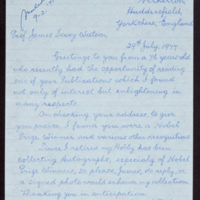 Netherton
Huddersfield,
Yorkshire, England
Prof James Dewey Watson
29th July, 1977
Greetings to you from a 76 year old
who recently had the opportunity of reading
one of your Publications which I found
not only of interest but enlightening in
many respects.
On checking your address, to give
you praise, I found you were a Nobel
Prize Winner and various other recognitions
Since I retired my Hobby has been
collecting Autographs, especially of Nobel
Prize Winners, so please, Sir, do reply, or
a signed photo would enhance my collection
Thanking you in anticipation